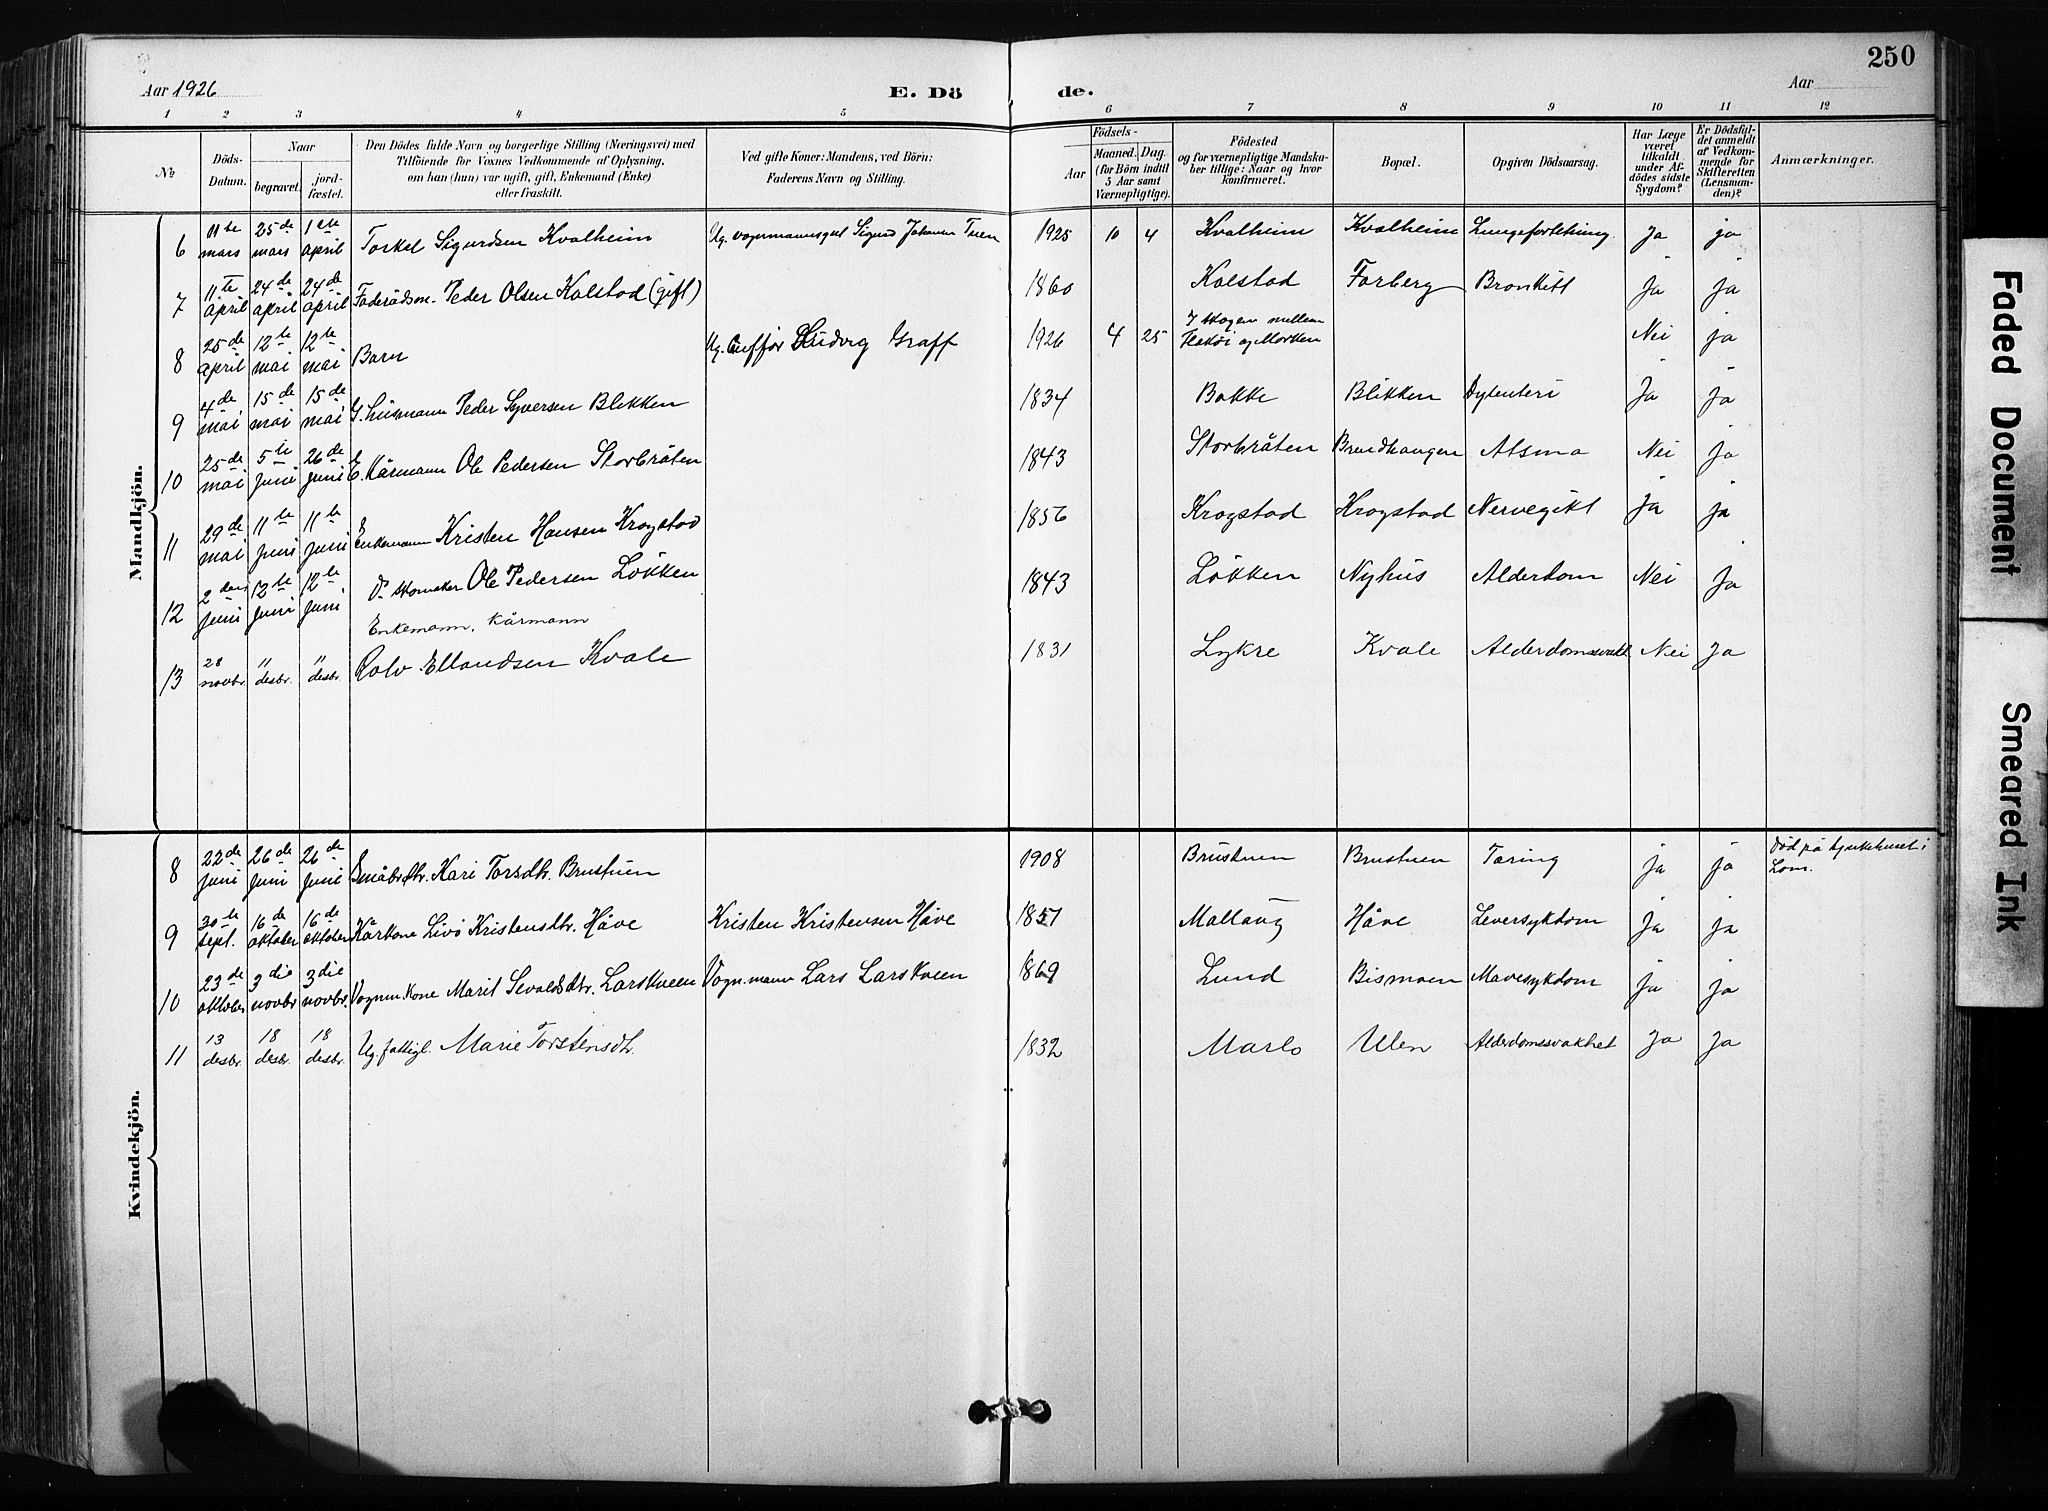 250
Aar 1926
E. Dö
de.
Aar
1 2 3 4 5 6 7 8 9 10 11 12
No
Döds-Datum.
Naar
begravet.
jord-fæstet.
Den Dödes fulde Navn og borgerlige Stilling (Næringsvei) med
Tilföiende for Voxnes Vedkommende af Oplysning,
om han (hun) var ugift, gift, Enkemand (Enke)
eller fraskilt.
Ved gifte Koner: Mandens, ved Börn:
Faderens Navn og Stilling.
Födsels-
Aar
Maaned. Dag.
(for Börn indtil
5 Aar samt
Værnepligtige).
Födested
og for værnepligtige Mandska-
ber tillige: Naar og hvor
konfirmeret.
Bopæl.
Opgiven Dödsaarsag.
Har Læge
været
tilkaldt
under Af-
dödes sidste
Sygdom?
Er Dödsfal-
det anmeldt
af Vedkom-
mende for
Skifteretten
(Lensman-
den)?
Anmærkninger.
Mandkjön.
6 11te mars 25de mars 1ste april Torkel Sigurdsen Kvalheim Ug. Sigurd Johannes 1925 10 4 Kvalheim Kvalheim Ja ja
7 11te april 24de april 24de april Føderådsm. Peder Olsen Kolstad (gift) 1860 Kolstad Forberg Bronkitt Ja Ja
8 25de april 12te mai 12te mai Barn Ug. Ludvig Graff 1926 4 25 I skogen mellem og Morken Nei ja
9 4de mai 15de mai 15de mai G. husmann Peder Syversen Blikken 1834 Bakke Blikken Dysenteri Ja Ja
10 25de mai 5te juni 26de juni E. Kårmann Ole Pedersen Storbråten 1843 Storbråten Brendhaugen Atsma Nei Ja
11 29de mai 11te juni 11te juni Enkemann Kristen Hansen Krogstad 1856 Krogstad Krogstad Nervegikt Ja ja
12 2den juni 12te juni 12te juni Do skomaker Ole Pedersen Løkken 1843 Løkken Nyhus Alderdom Nei Ja
Enkemann, Kårmann
13 28 novbr. 11 desbr. 11 desbr. Rolv Ellandsen Kvale 1831 Lykre Kvale Alderdomssvakh. Nei Ja
Kvindekjön.
8 22de juni 26de juni 26de juni Småbr.dtr. Kari Torsdtr. Brustuen 1908 Brustuen Brustuen Tæring ja ja Død på sjukehuset i
Lom.
9 30te sept. 16de oktober 16de oktober Kårkone Livø Kristensdtr. Håve Kristen Kristensen Håve 1851 Mallaug Håve Leversykdom Ja Ja
10 23de oktober 3die novbr. 3die novbr. Vognm. Kone Marit Sevaldsdtr. Larskveen Vogn.mann Lars Larskveen 1869 Lund Bismoen Mavesykdom Ja Ja
11 13 desbr. 18 desbr. 18 desbr. Ug. fattigl. Marie Torstensdtr. 1832 Marlo Ulen Alderdomssvakhet Ja Ja
Faded Document
Smeared Ink